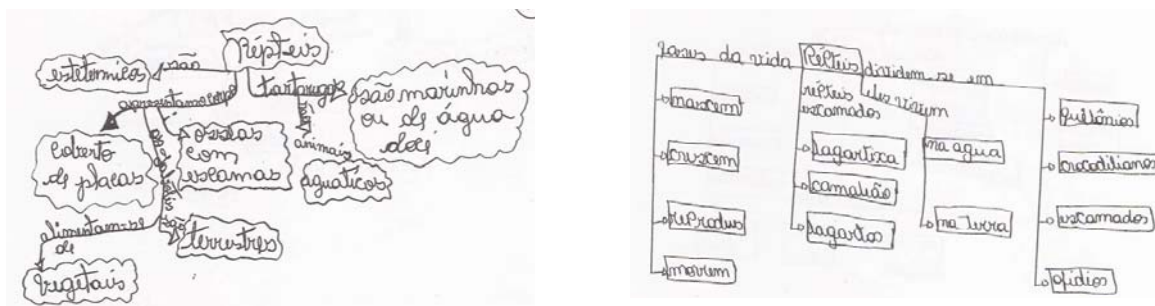 Répteis
são
estetermicos
tartarugas
são marinhas
ou de água
doce
apresentam o corpo
coberto
de placas
ossias
com
escamas
são
animais
aquaticos
são
terrestres
alimentam-se
de
vegetais
fases da vida
Répteis
dividem se em
nascem
crescem
reprodus
morrem
répteis
escamados
lagartixa
camalião
lagartos
eles vivem
na agua
na terra
quelônios
crocodilianos
escamados
ofidios